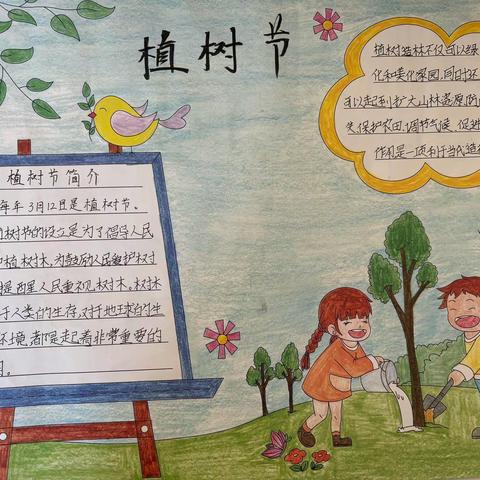 植树节
植树造林不仅可以绿
化和美化家园,同时还
可以起到扩大山林资源,防
保护农田,调节气候,促进
作用是一项利于当代造
植树节简介
每年3月12日是植树节。
树节的设立是为了倡导人民
植树木,为鼓励人民爱护树
提醒人民重视树木。树木
于人类的生存,对于地球的生
环境,都是起着非常重要的